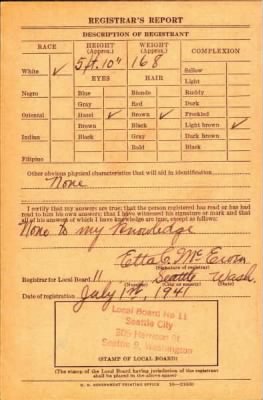 REGISTRAR'S REPORT
DESCRIPTION OF REGISTRANT
RACE HEIGHT (Approx.) WEIGHT (Approx.) COMPLEXION
White ✓ 5 ft. 10" 168 Sallow
EYES HAIR Light
Negro Blue Blonde Ruddy
Gray Red Dark
Oriental Hazel ✓ Brown ✓ Freckled
Brown Black Light brown ✓
Indian Black Gray Dark brown
Bald Black
Filipino
Other obvious physical characteristics that will aid in identification
None
I certify that my answers are true; that the person registered has read or has had
read to him his own answers; that I have witnessed his signature or mark and that
all of his answers of which I have knowledge are true, except as follows:
None to my knowledge
Etta C. McEwen
(Signature of registrar)
Registrar for Local Board 11 Seattle Wash
(Number) (City or county) (State)
Date of registration July 1st, 1941
Local Board No 11
Seattle City
305 Harrison St
Seattle 9, Washington
(STAMP OF LOCAL BOARD)
(The stamp of the Local Board having jurisdiction of the registrant
shall be placed in the above space)
U. S. GOVERNMENT PRINTING OFFICE